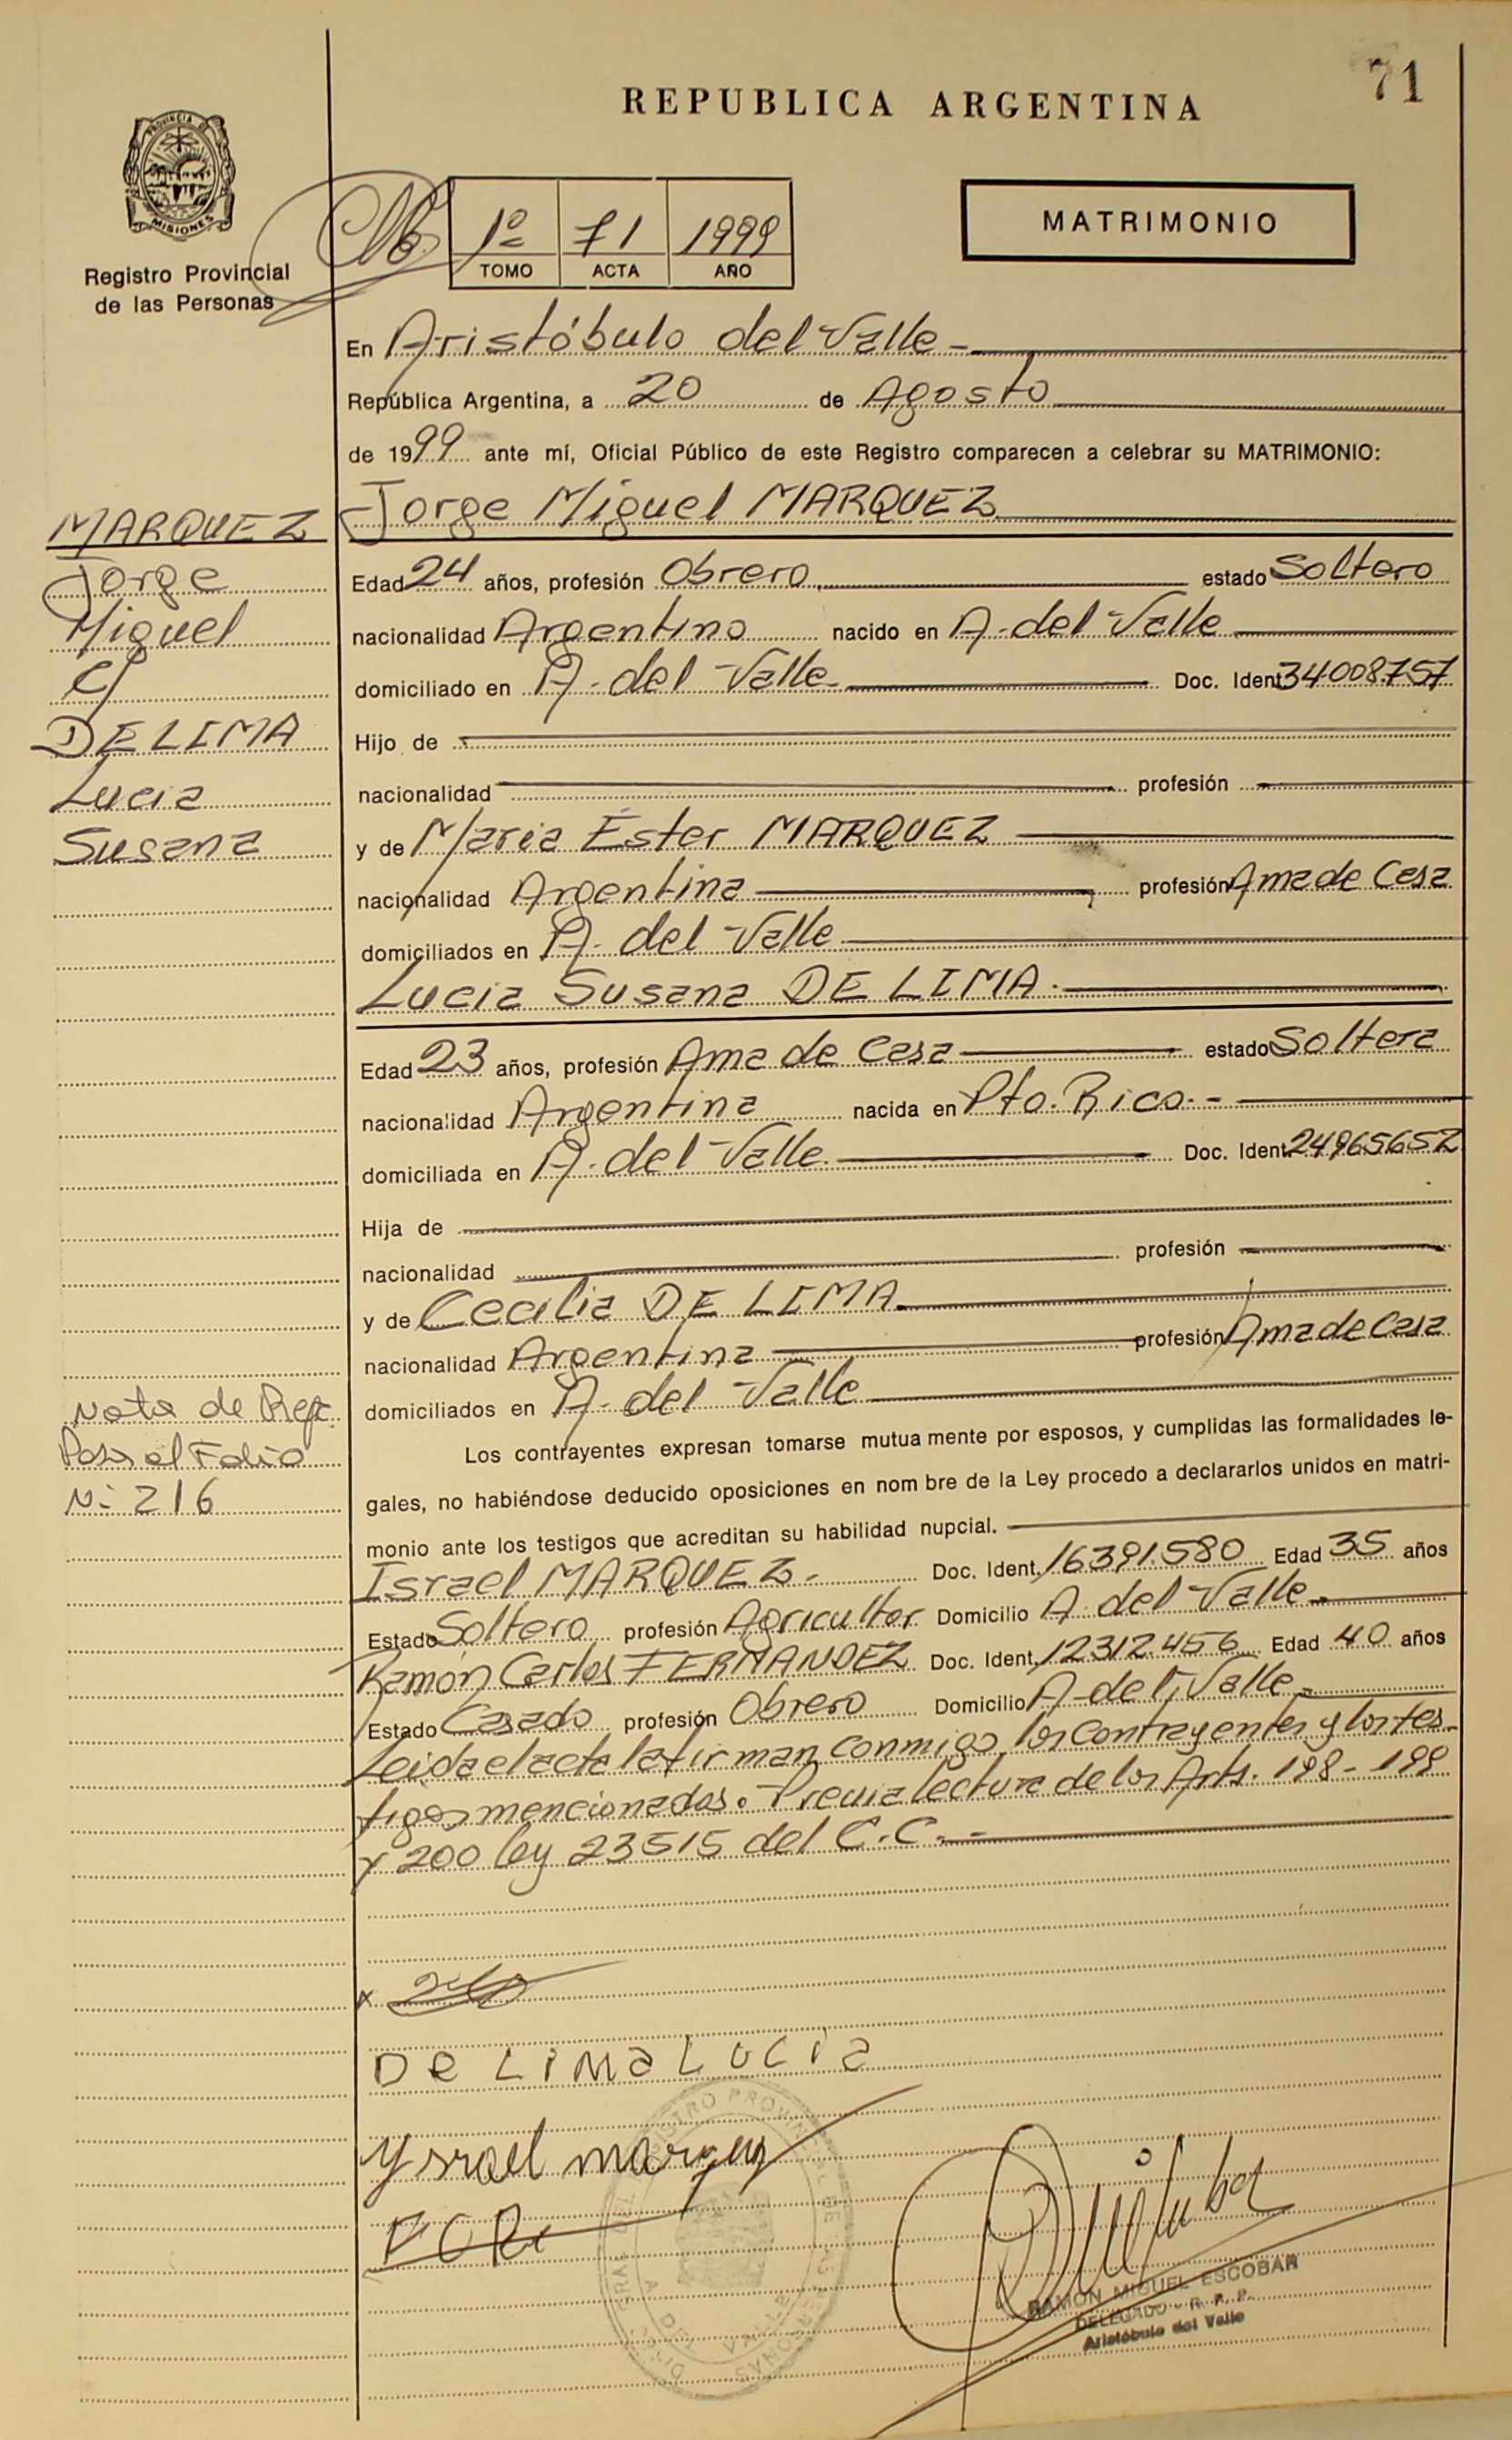 71
REPUBLICA ARGENTINA
PROVINCIA DE MISIONES
Registro Provincial
de las Personas
1º 71 1999
TOMO ACTA AÑO
MATRIMONIO
En Aristóbulo del Valle -
República Argentina, a 20 de Agosto
de 1999 ante mí, Oficial Público de este Registro comparecen a celebrar su MATRIMONIO:
MARQUEZ
Jorge
Miguel
c/
DE LIMA
Lucia
Susana
Jorge Miguel MARQUEZ
Edad 24 años, profesión Obrero estado Soltero
nacionalidad Argentino nacido en A. del Valle
domiciliado en A. del Valle Doc. Ident 34008.757
Hijo de
nacionalidad profesión
y de Maria Ester MARQUEZ
nacionalidad Argentina profesión Ama de Casa
domiciliados en A. del Valle
Lucia Susana DE LIMA.
Edad 23 años, profesión Ama de Casa estado Soltera
nacionalidad Argentina nacida en Pto. Rico. -
domiciliada en A. del Valle. Doc. Ident. 24965652
Hija de
nacionalidad profesión
y de Cecilia DE LIMA
nacionalidad Argentina profesión Ama de Casa
domiciliados en A. del Valle
Nota de Ref.
Pasa al Folio
N: 216
Los contrayentes expresan tomarse mutua mente por esposos, y cumplidas las formalidades le-
gales, no habiéndose deducido oposiciones en nom bre de la Ley procedo a declararlos unidos en matri-
monio ante los testigos que acreditan su habilidad nupcial.
Israel MARQUEZ. Doc. Ident. 16391.580 Edad 35 años
Estado Soltero profesión Agricultor Domicilio A. del Valle
Ramón Carlos FERNANDEZ Doc. Ident. 12312.456 Edad 40 años
Estado Casado profesión Obrero Domicilio A. del Valle
Leida el acta la firman conmigo, los contrayentes y los tes-
tigos mencionados. Previa lectura de los Arts. 198 - 199
y 200 ley 23515 del C.C. -
x
De Lima Lucia
Ysrael marquez
RAMON MIGUEL ESCOBAR
DELEGADO - R. P. P.
Aristóbulo del Valle